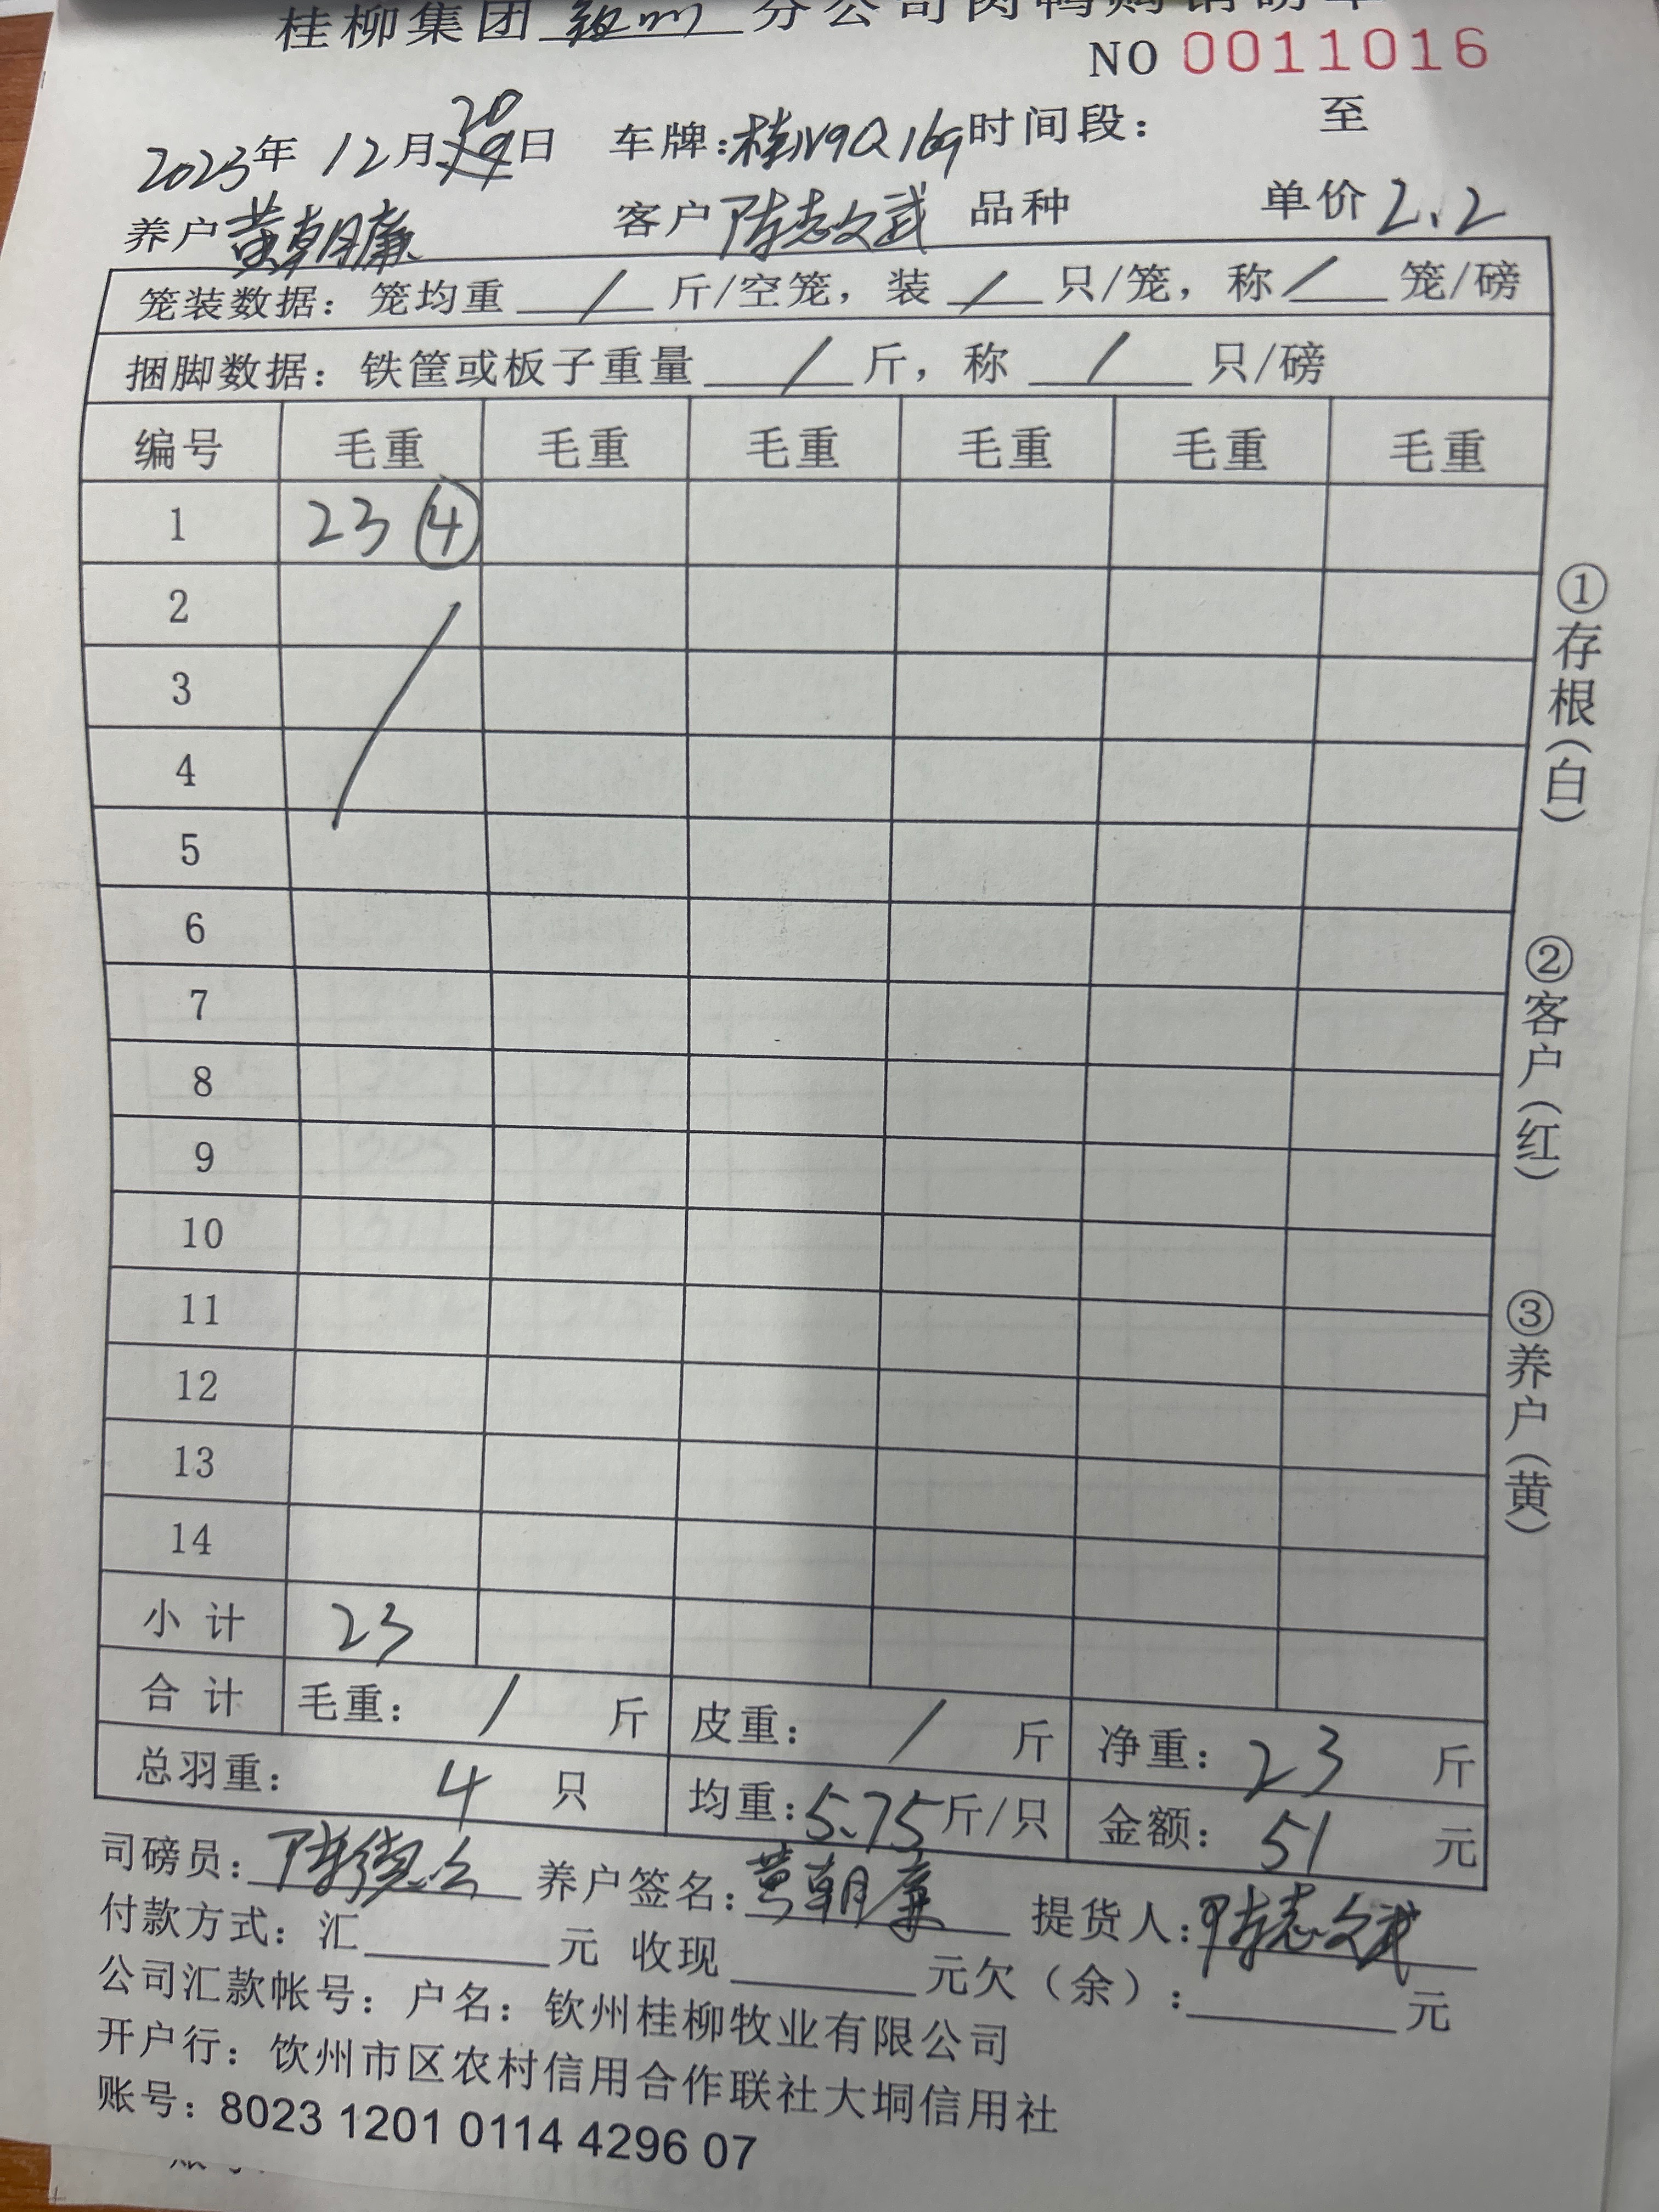 桂柳集团 钦州 分公司肉鸭购销磅单
NO 0011016
2023年 12月 20日 车牌:桂N9Q169 时间段: 至
养户 黄朝廉 客户 陈志文武 品种 单价 2.2
笼装数据: 笼均重 / 斤/空笼, 装 / 只/笼, 称 / 笼/磅
捆脚数据: 铁筐或板子重量 / 斤, 称 / 只/磅
编号 毛重 毛重 毛重 毛重 毛重 毛重
1 23 ④
2
3
4
5
6
7
8
9
10
11
12
13
14
小计 23
合计 毛重: / 斤 皮重: / 斤 净重: 23 斤
总羽重: 4 只 均重: 5.75 斤/只 金额: 51 元
司磅员: 陈德 养户签名: 黄朝廉 提货人: 陈志文武
付款方式: 汇 元 收现 元欠(余): 元
公司汇款帐号: 户名: 钦州桂柳牧业有限公司
开户行: 饮州市区农村信用合作联社大垌信用社
账号: 8023 1201 0114 4296 07
①存根(白)
②客户(红)
③养户(黄)